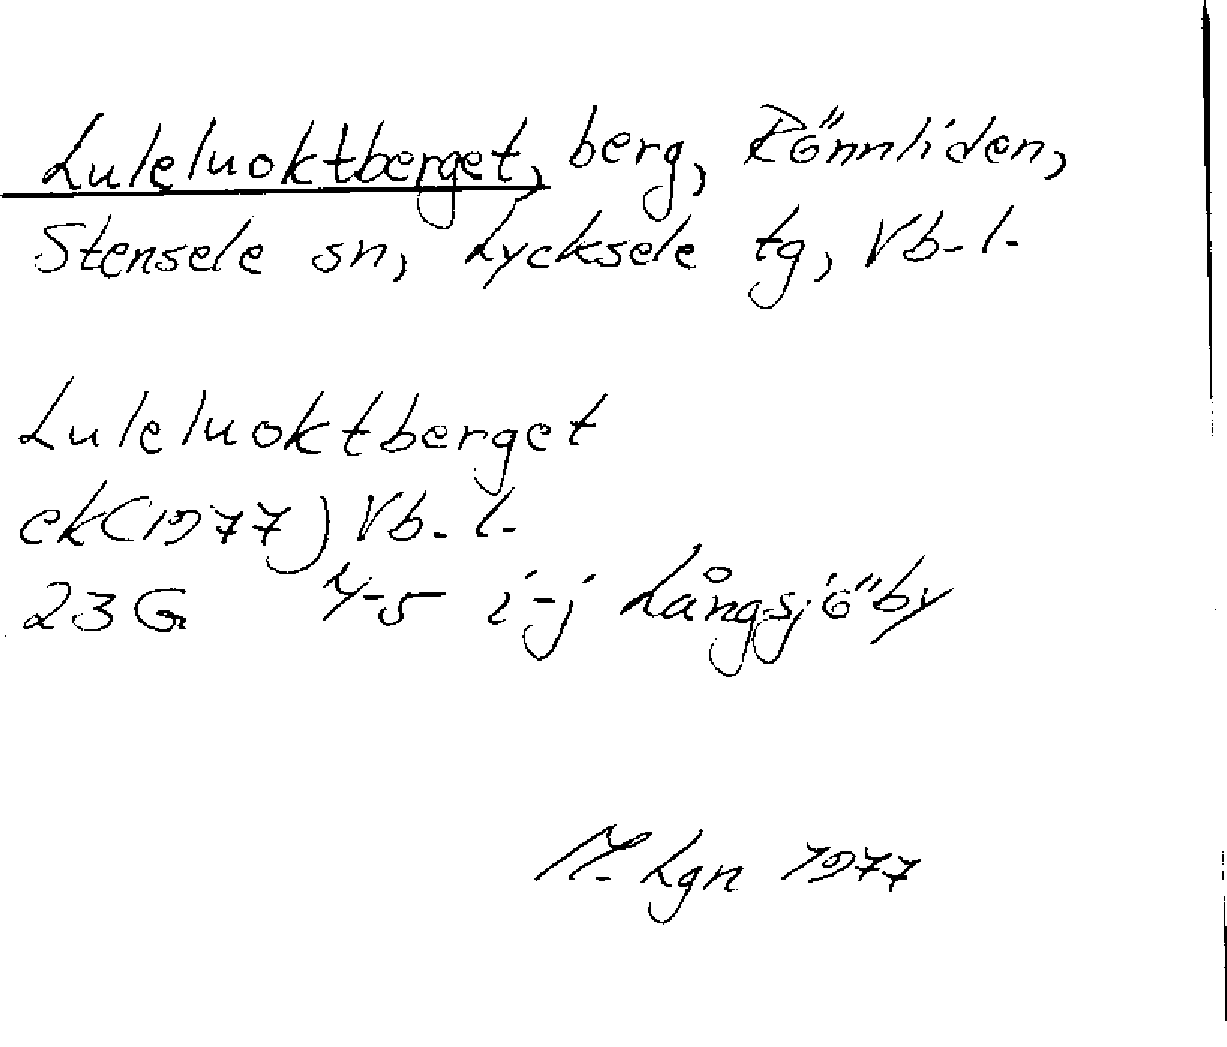 Luleluoktberget, berg, Rönnliden,
Stensele sn, Lycksele tg, Vb. l.
Luleluoktberget
ek (1977) Vb. l.
23 G 4-5 i-j Långsjöby
M. Lgn 1977